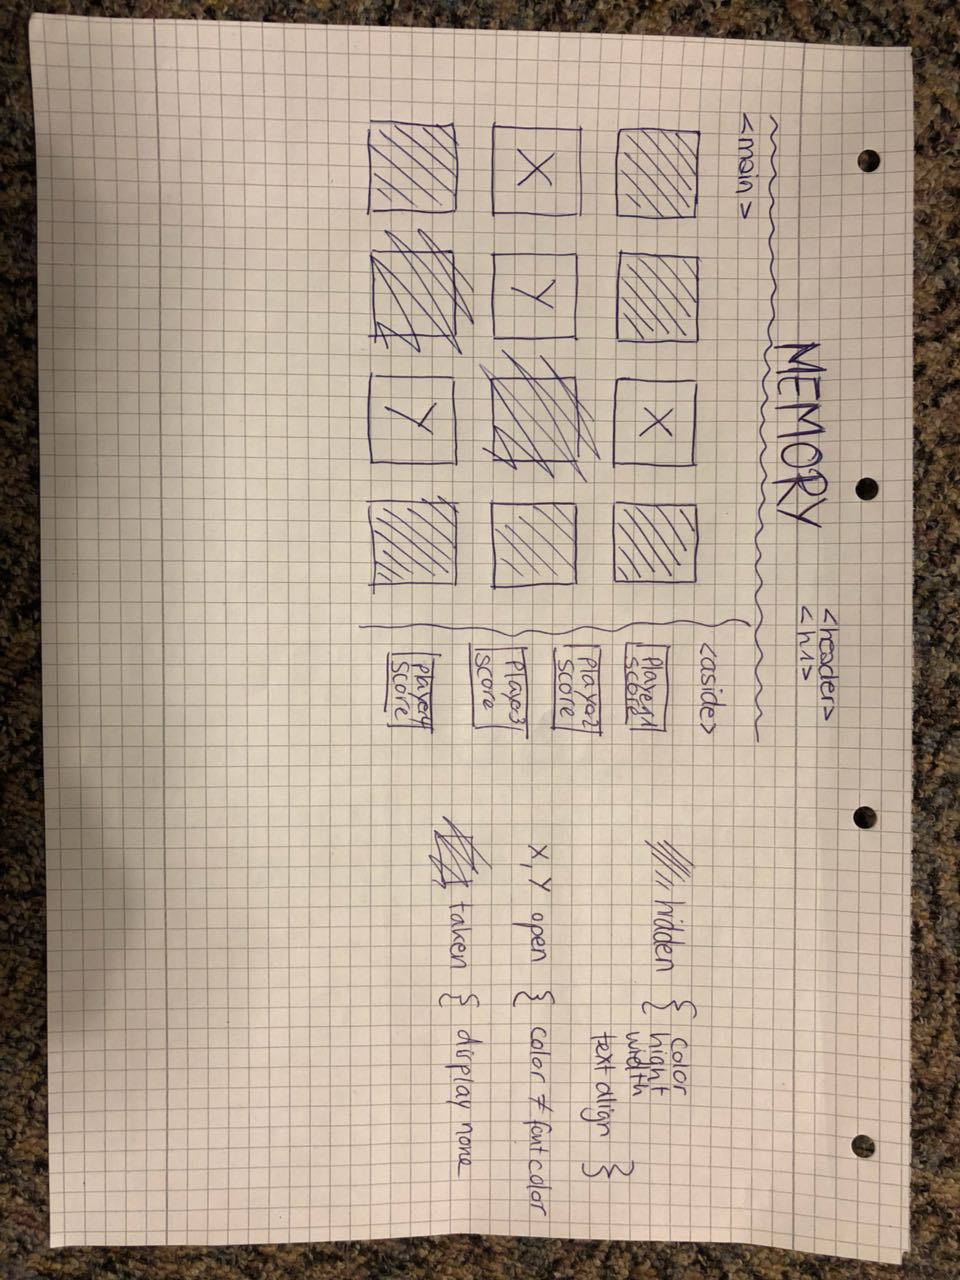 MEMORY
<header>
<h1>
<main>
X
X
Y
Y
<aside>
Player1
score
Player2
score
Player3
score
Player4
score
hidden { color
hight
width
text align }
X, Y open { color ≠ font color
taken { display none